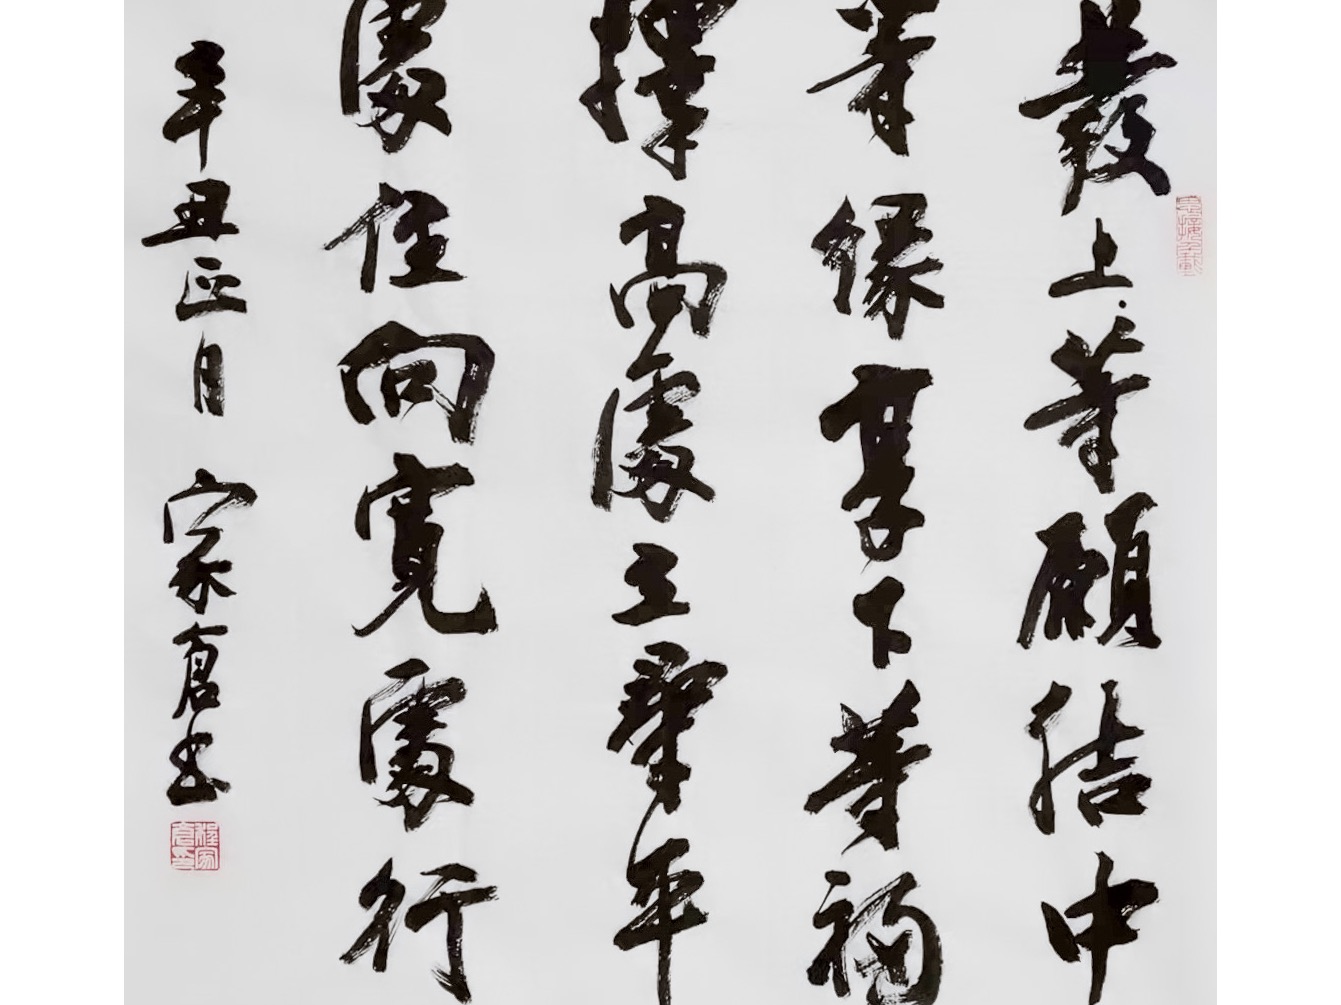 發上等願結中
等緣享下等福
擇高處立尋平
處住向寬處行
辛丑正月 家倉书